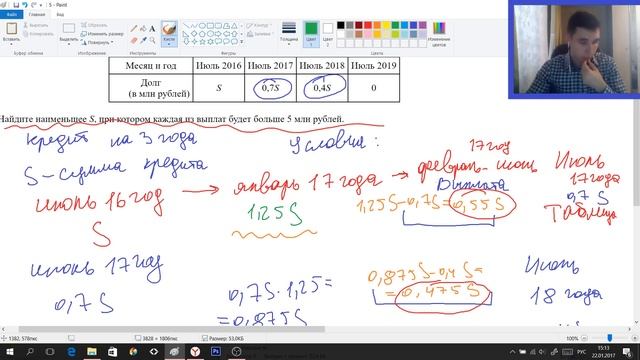 5 - Paint
Вставить
Вырезать
Копировать
Выделить
Обрезать
Изменить размер
Повернуть
Кисти
Контур
Заливка
Толщина
Цвет 1
Цвет 2
Изменение цветов
Буфер обмена
Изображение
Инструменты
Фигуры
Цвета
Месяц и год Июль 2016 Июль 2017 Июль 2018 Июль 2019
Долг (в млн рублей) S 0,7S 0,4S 0
Найдите наименьшее S, при котором каждая из выплат будет больше 5 млн рублей.
кредит на 3 года
Условия:
S - сумма кредита
июль 16 год → январь 17 года → февраль - июнь
17 год
Июль
17 года
0,7 S
Таблица
Выплата
S
1,25 S
1,25S - 0,7S = 0,55 S
июль 17 год
0,7 S
0,7S · 1,25 =
= 0,875S
0,875S - 0,4 S =
= 0,475 S
Июль
18 года
1382, 578пкс
3828 × 1806пкс
Размер: 53,0КБ
100%
РУС
15:13
22.01.2017